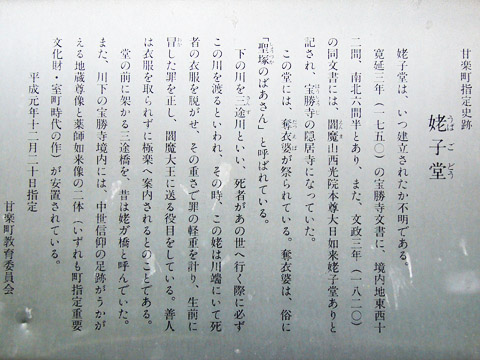 甘楽町指定史跡
姥子堂
うば ご どう
姥子堂は、いつ建立されたか不明である。
寛延三年（一七五〇）の宝勝寺文書に、境内地東西十
二間、南北六間半とあり、また、文政三年（一八二〇）
の同文書には、閻魔山西光院本尊大日如来姥子堂ありと
記され、宝勝寺の隠居寺になっていた。
この堂には、奪衣婆が祭られている。奪衣婆は、俗に
「聖塚のばあさん」と呼ばれている。
下の川を三途川といい、死者があの世へ行く際に必ず
この川を渡るといわれ、その時、この姥は川端にいて死
者の衣服を脱がせ、その重さで罪の軽重を計り、生前に
冒した罪を正し、閻魔大王に送る役目をしている。善人
は衣服を取られずに極楽へ案内されるとのことである。
堂の前に架かる三途橋を、昔は姥が橋と呼んでいた。
また、川下の宝勝寺境内には、中世信仰の足跡がうかが
える地蔵尊像と薬師如来像の二体（いずれも町指定重要
文化財・室町時代の作）が安置されている。
平成元年十二月二十日指定
甘楽町教育委員会